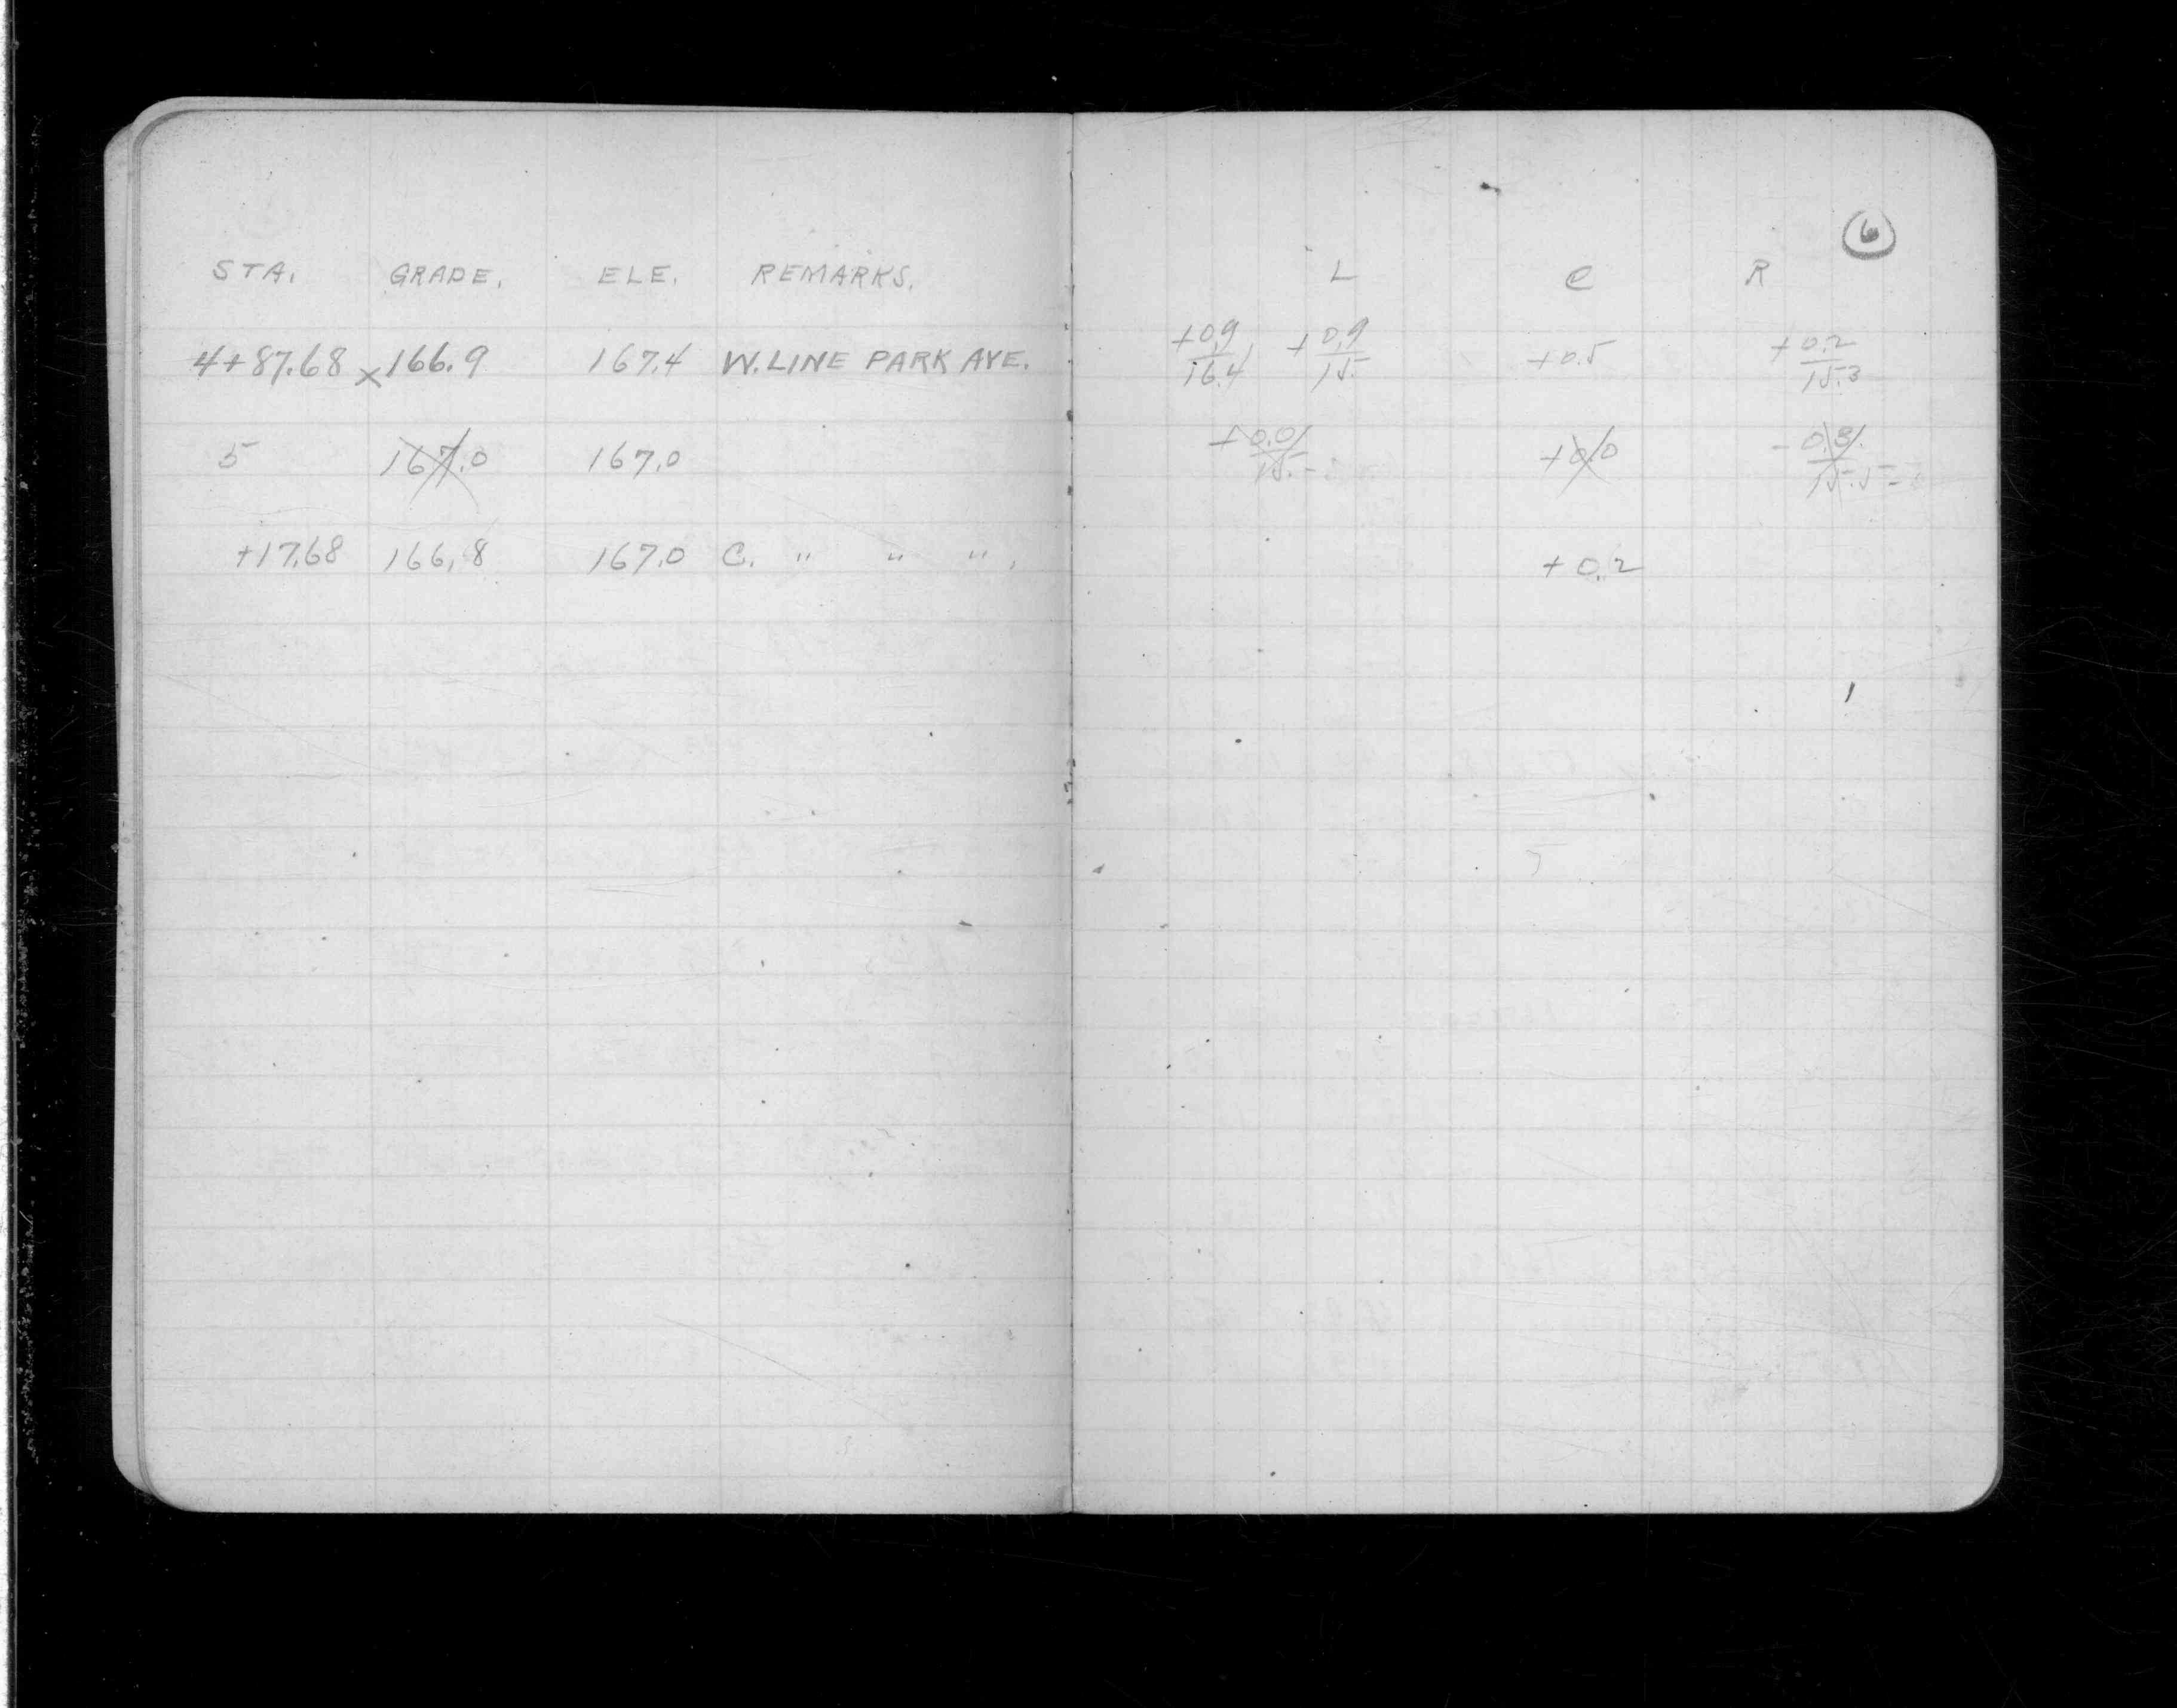 STA. GRADE. ELE. REMARKS.
4+87.68 x 166.9 167.4 W. LINE PARK AVE.
5 167.0 167.0
+17.68 166.8 167.0 C. " " ".
6
L C R
+0.9/16.4 +0.9/15 +0.5 +0.2/15.3
+0.0/15. +0.0 -0.3/15.5
+0.2